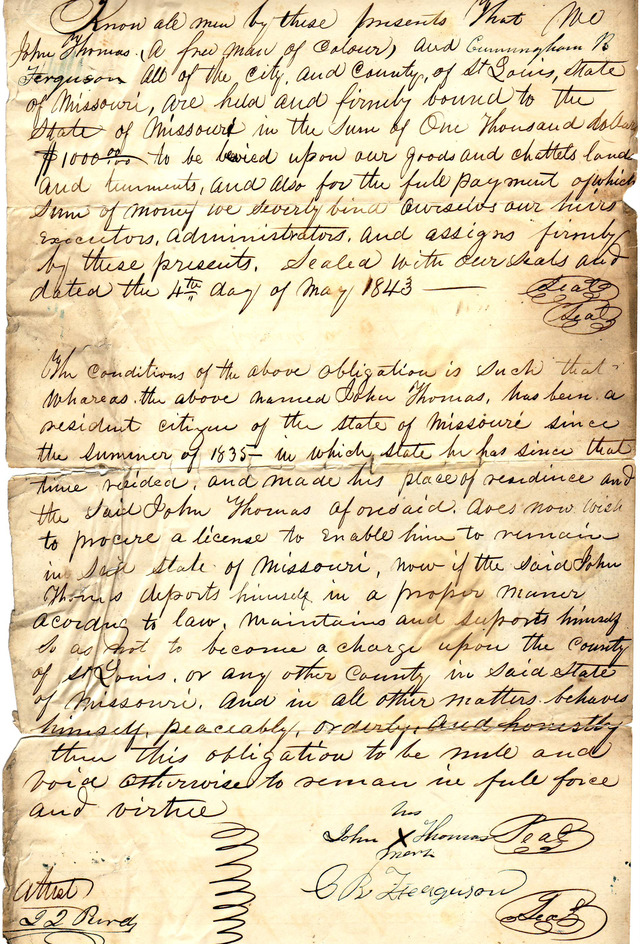 Know all men by these presents That We
John Thomas (A free man of Colour) and Cunningham R
Ferguson All of the City, and County, of St Louis, State
of Missouri, are held and firmly bound to the
State of Missouri in the sum of One Thousand dollars
$1000.00 to be levied upon our goods and chattels land
and tenments, and also for the full payment of which
Sum of money we severly bind ourselves our heirs
Executors, Administrators, and assigns firmly
by these presents, Sealed with our Seals and
dated the 4th day of May 1843 — Seal
Seal
The conditions of the above obligation is such that
Whereas the above named John Thomas, has been a
resident citizen of the state of Missouri since
the summer of 1835 – in which state he has since that
time resided, and made his place of residence and
the said John Thomas aforesaid. does now wish
to procere a license to enable him to remain
in said state of Missouri, now if the said John
Thomas deports himself in a proper maner
acording to law, maintains and suports himself
so as not to become a charge upon the county
of St Louis, or any other County in said state
of Missouri. And in all other matters behaves
himself, peaceably, orderly, and honestly
then this obligation to be nule and
void otherwise to remain in full force
and virtue
his
John X Thomas Seal
mark
C R Fearguson
Seal
Attest